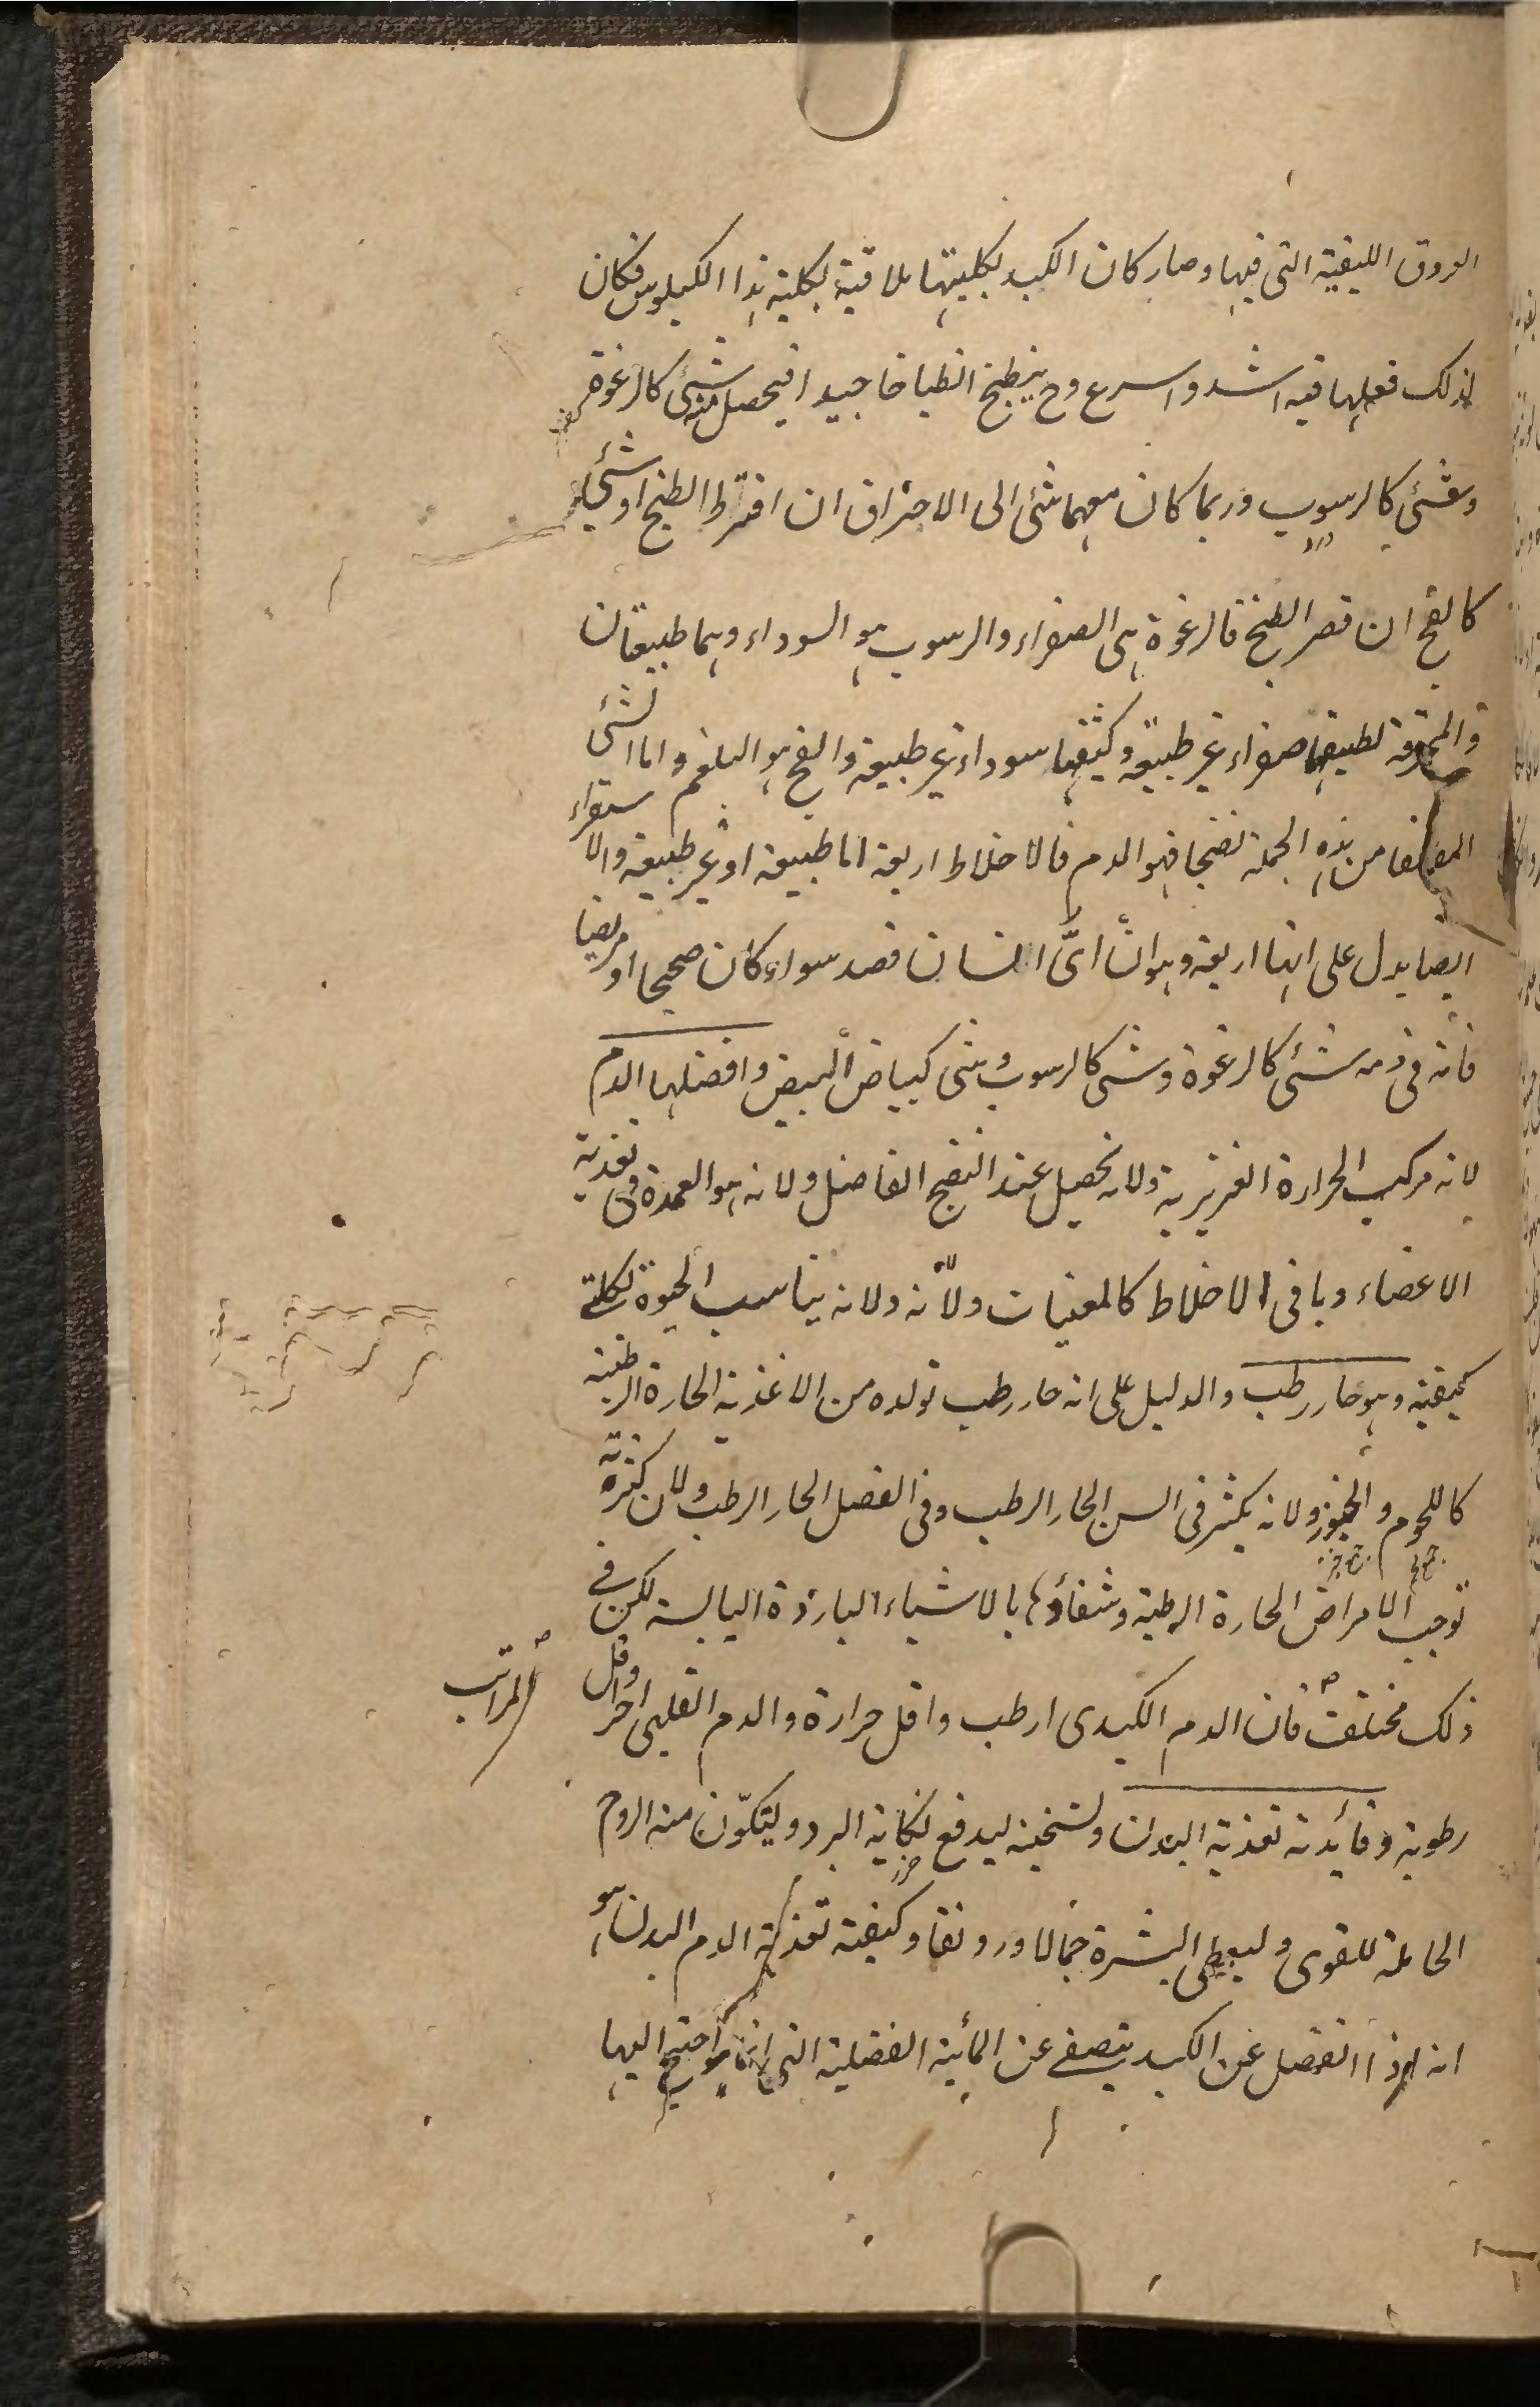 العروق الليفية التى فيها وصار كان الكبد بكليتها ملاقية لكلية هذا الكيلوس فكان
لذلك فعلها فيه اشد واسرع وح ينطبخ انطباخا جيدا فيحصل منه شئ كالرغوة
وشئ كالرسوب وربما كان معهما شئ الى الاحتراق ان افرط الطبخ او شئ
كالفج ان قصر الطبخ فالرغوة هى الصفراء والرسوب هو السوداء وهما طبيعتان
والمحترقة لطيفها صفراء غير طبيعية وكثيفها سوداء غير طبيعية والفج هو البلغم واما الشئ
المصفا من هذه الجملة نضجا فهو الدم فالاخلاط اربعة اما طبيعية او غير طبيعية والاستقراء
ايضا يدل على انها اربعة وهو انّ اىّ انسان فصد سواء كان صحيحا او مريضا
فانه فى دمه شئ كالرغوة وشئ كالرسوب وشئ كبياض البيض وافضلها الدم
لانه مركب الحرارة الغريزية ولانه يحصل عند النضج الفاضل ولانه هو العمدة فى تغذية
الاعضاء وباقى الاخلاط كالمعينات ولانه ولانه يناسب الحيوة بكلتى
كيفيته وهو حار رطب والدليل على انه حار رطب تولده من الاغذية الحارة الرطبة
كاللحوم والخبوز ولانه يكثر فى السن الحار الرطب وفى الفصل الحار الرطب ولان كثرته
توجب الامراض الحارة الرطبة وشفاؤها بالاشياء الباردة اليابسة لكن فى
ذلك مختلفة فان الدم الكبدى ارطب واقل حرارة والدم القلبى احر واقل
المراتب
رطوبة وفائدته تغذية البدن وتسخينه ليدفع نكاية البرد وليتكوّن منه الروح
الحاملة للقوى وليعطى البشرة جمالا ورونقا وكيفية تغذية الدم البدن هو
انه اذا انفصل عن الكبد يتصفى عن المائية الفضلية التى انما احتيج اليها